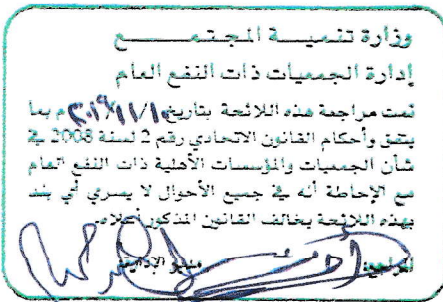 وزارة تنميـــة المجتمـــع
إدارة الجمعيات ذات النفع العام
تمت مراجعة هذه اللائحة بتاريخ ٢٠١٩/١١/١٠م بما
يتفق وأحكام القانون الاتحادي رقم 2 لسنة 2008 في
شأن الجمعيات والمؤسسات الأهلية ذات النفع العام
مع الإحاطة أنه في جميع الأحوال لا يسري أي بند
بهذه اللائحة يخالف القانون المذكور أعلاه.
المراجع: مدير الإدارة